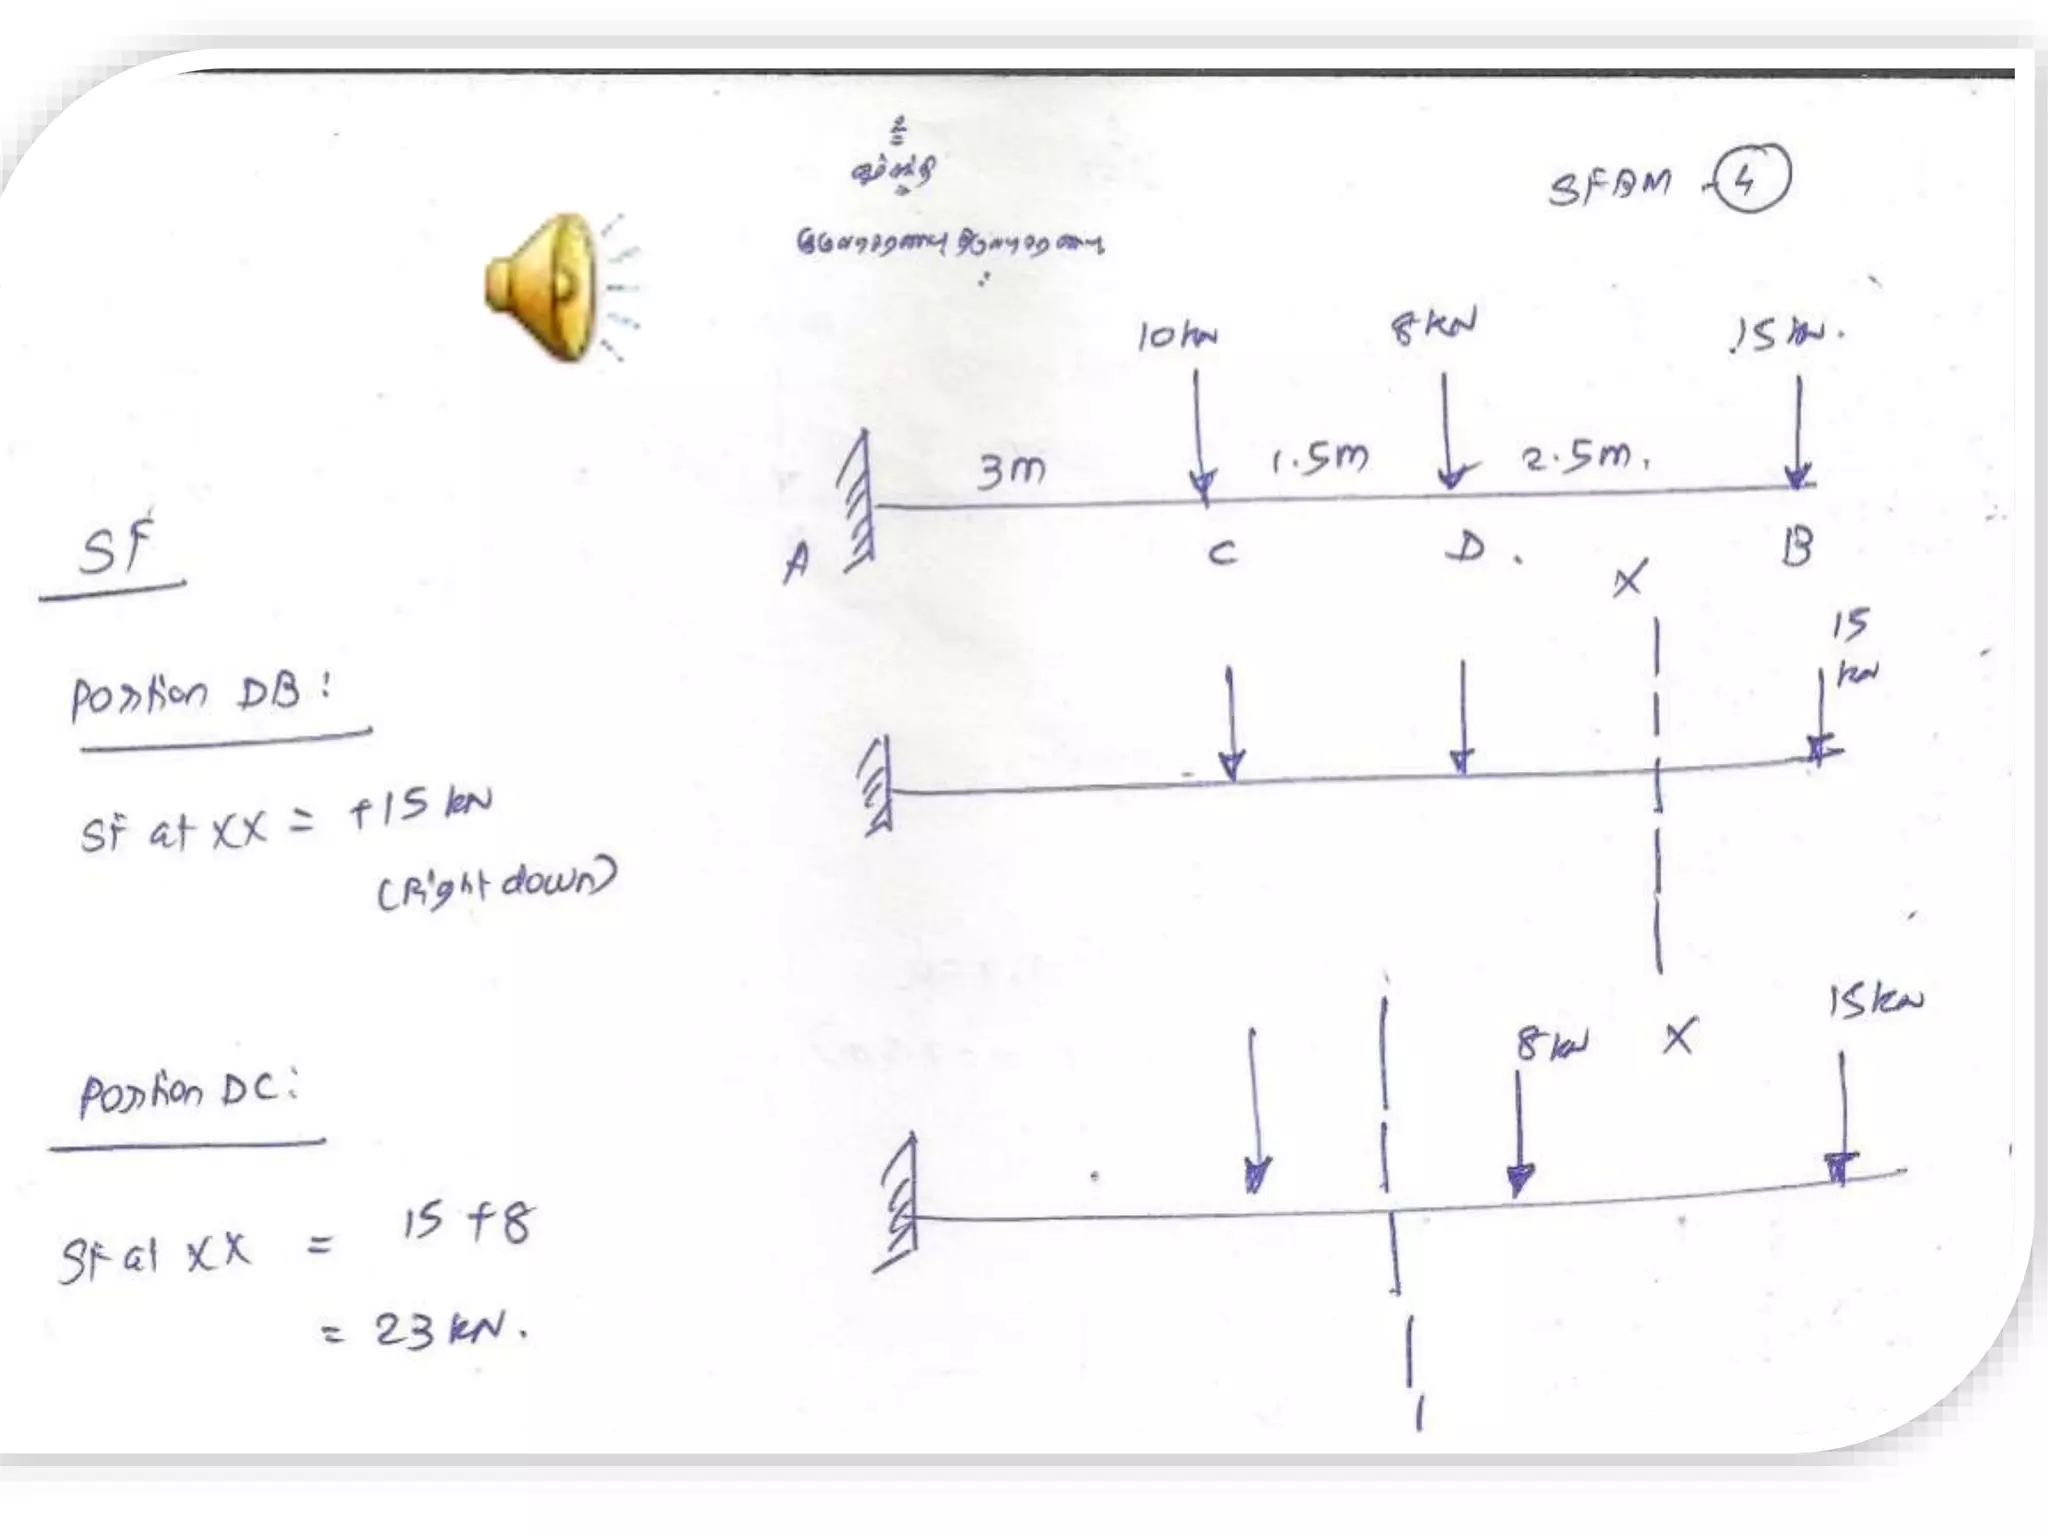 உ
SFBM - 4
10 kN 8 kN 15 kN.
3m 1.5m 2.5m.
A C D. B
SF
X
15
kN
Portion DB:
SF at XX = +15 kN
(Right down)
X
8 kN 15 kN
Portion DC:
SF at XX = 15 + 8
= 23 kN.